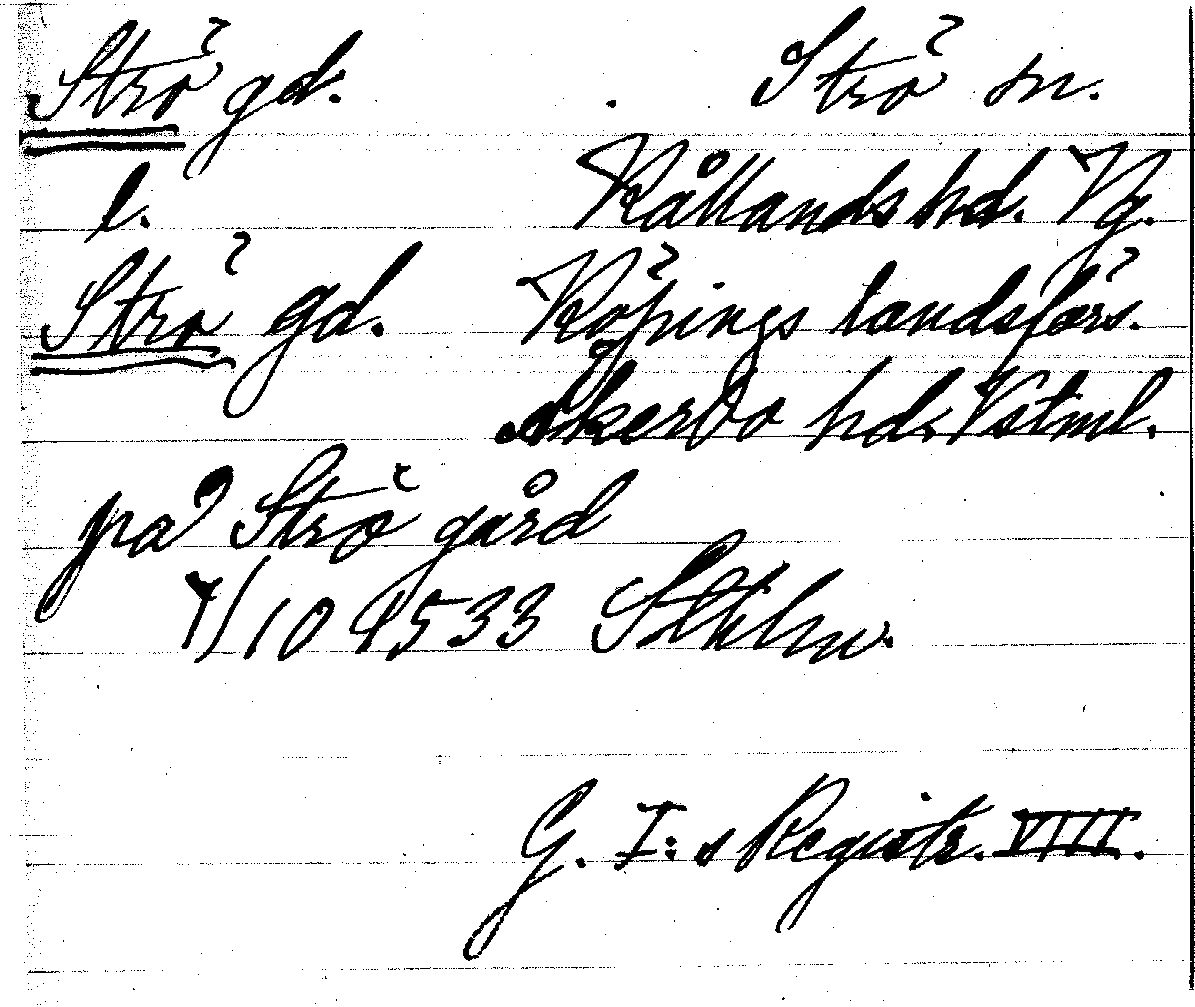 Strö gd. Strö sn.
l. Kållands hd. Vg.
Strö gd. Köpings landsförs.
Åkerbo hd. Vstml.
på Strö gård
7/10 1533 Sthlm.
G. I:s Registr. VIII.